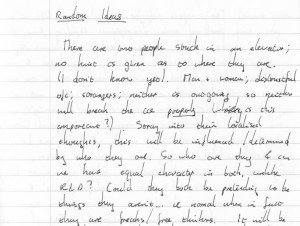 Random Ideas
There are two people stuck in an elevator;
no hint is given as to where they are.
(I don't know yet). Man + woman; distrustful
o/c; strangers; neither is outgoing so neither
will break the ice properly (why is this
importance?) Story into their localised
thoughts, this will be influenced / determined
by who they are. So who are they & can
we have equal character in both, unlike
R.L.D? Could they both be pretending to be
things they aren't... ie normal when in fact
they are freaks / free thinkers. It will be